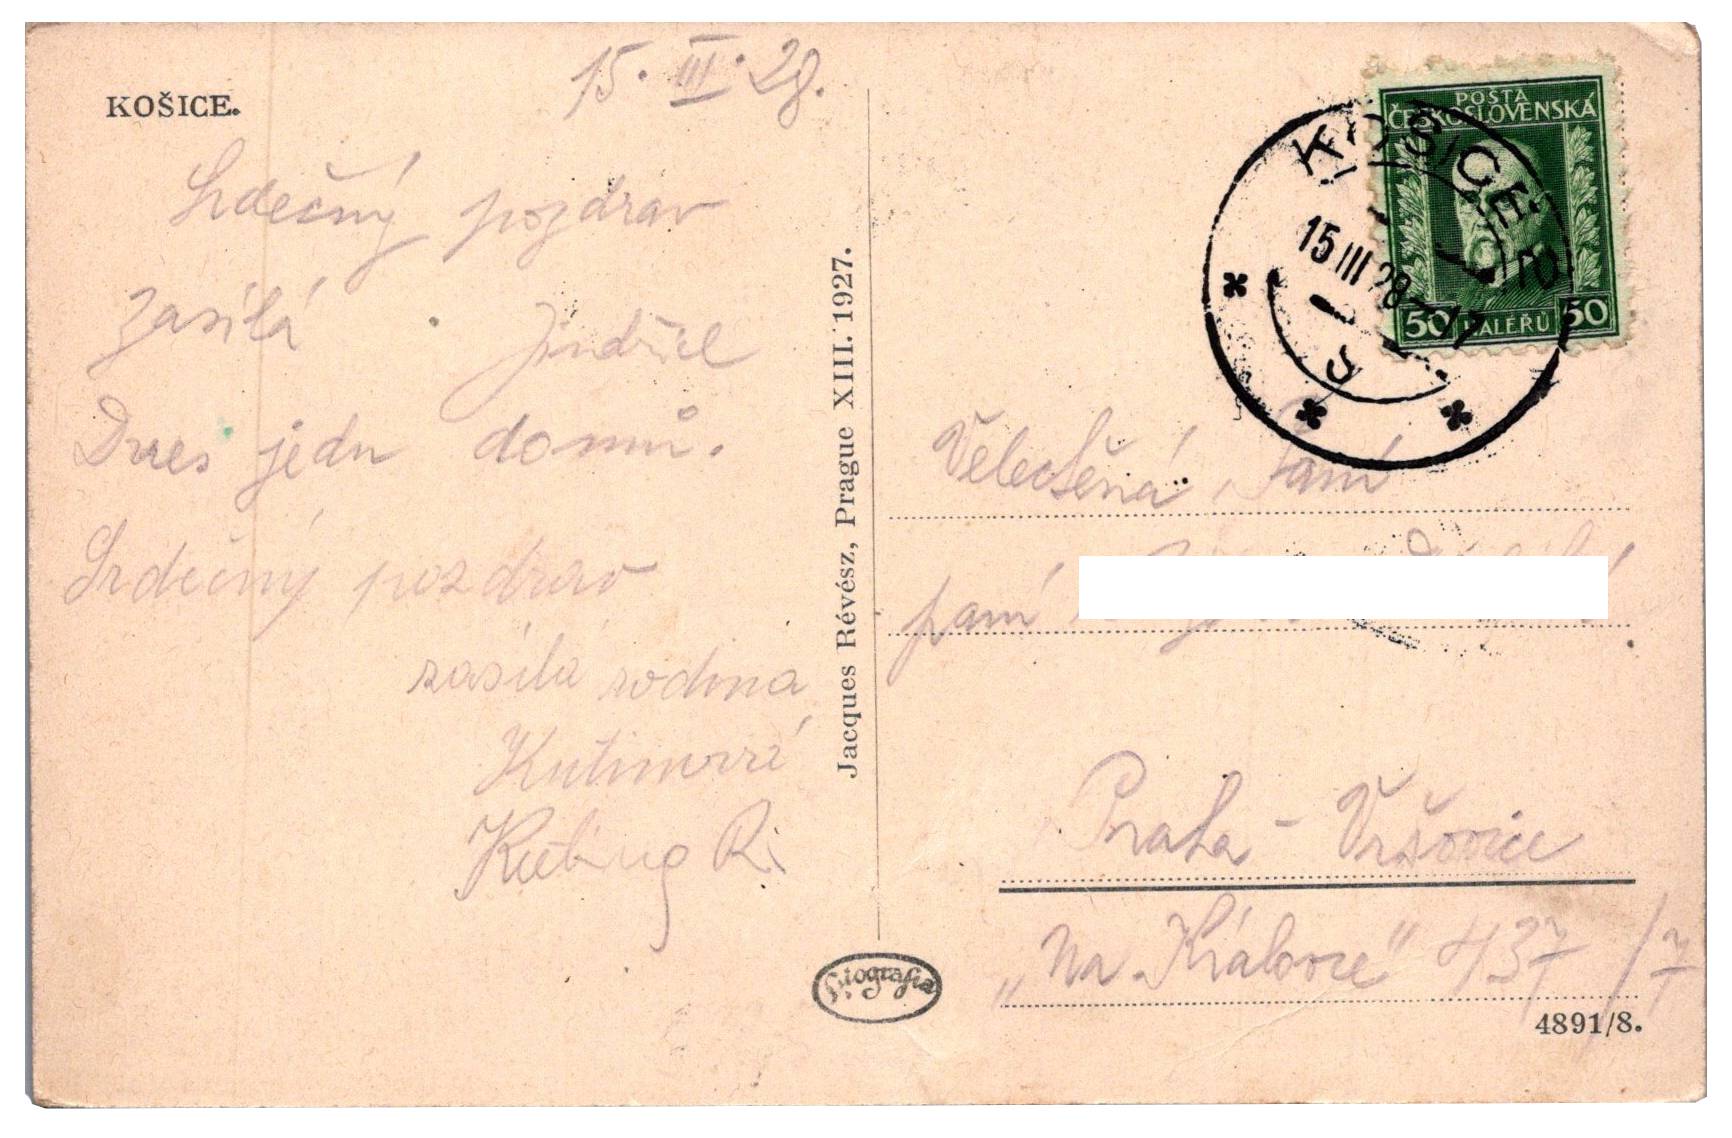 KOŠICE.
15. III. 28.
Srdečný pozdrav
zasílá Jindřich
Dnes jedu domů.
Srdečný pozdrav
zasílá rodina
R.
Jacques Révész, Prague XIII. 1927.
Fotografia
POŠTA
ČESKOSLOVENSKÁ
50 HALÉŘŮ 50
KOŠICE 2
15 III 28 - 17
Velectěná Paní
paní
Praha - Vršovice
„Na Královce" 437/7
4891/8.